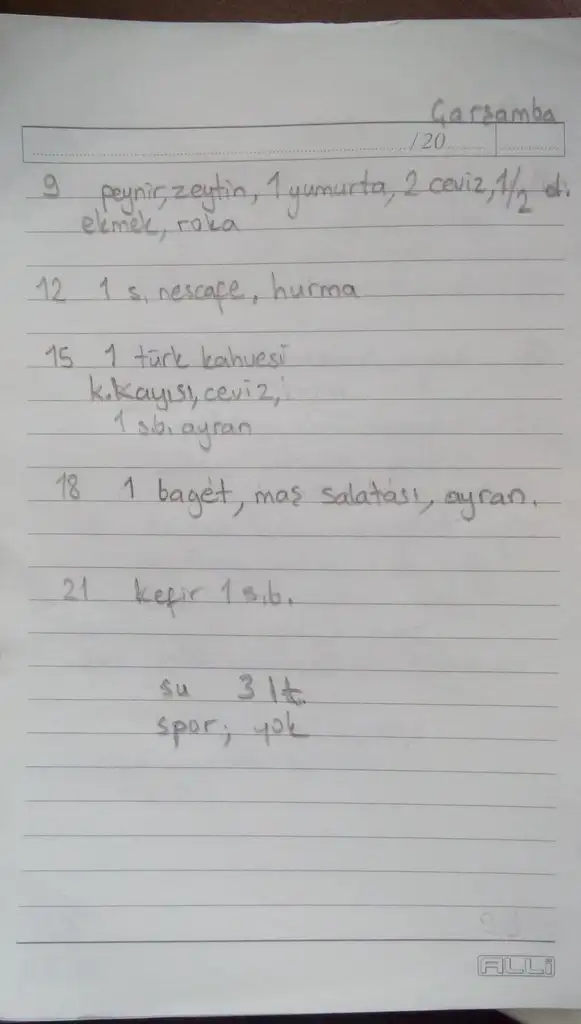 Çarşamba
/20
9 peynir, zeytin, 1 yumurta, 2 ceviz, 1/2 di.
ekmek, roka
12 1 s. nescafe, hurma
15 1 türk kahvesi
k.kayısı, ceviz,
1 s.b. ayran
18 1 baget, maş salatası, ayran.
21 kefir 1 s.b.
su 3 lt.
spor; yok
ALLİ